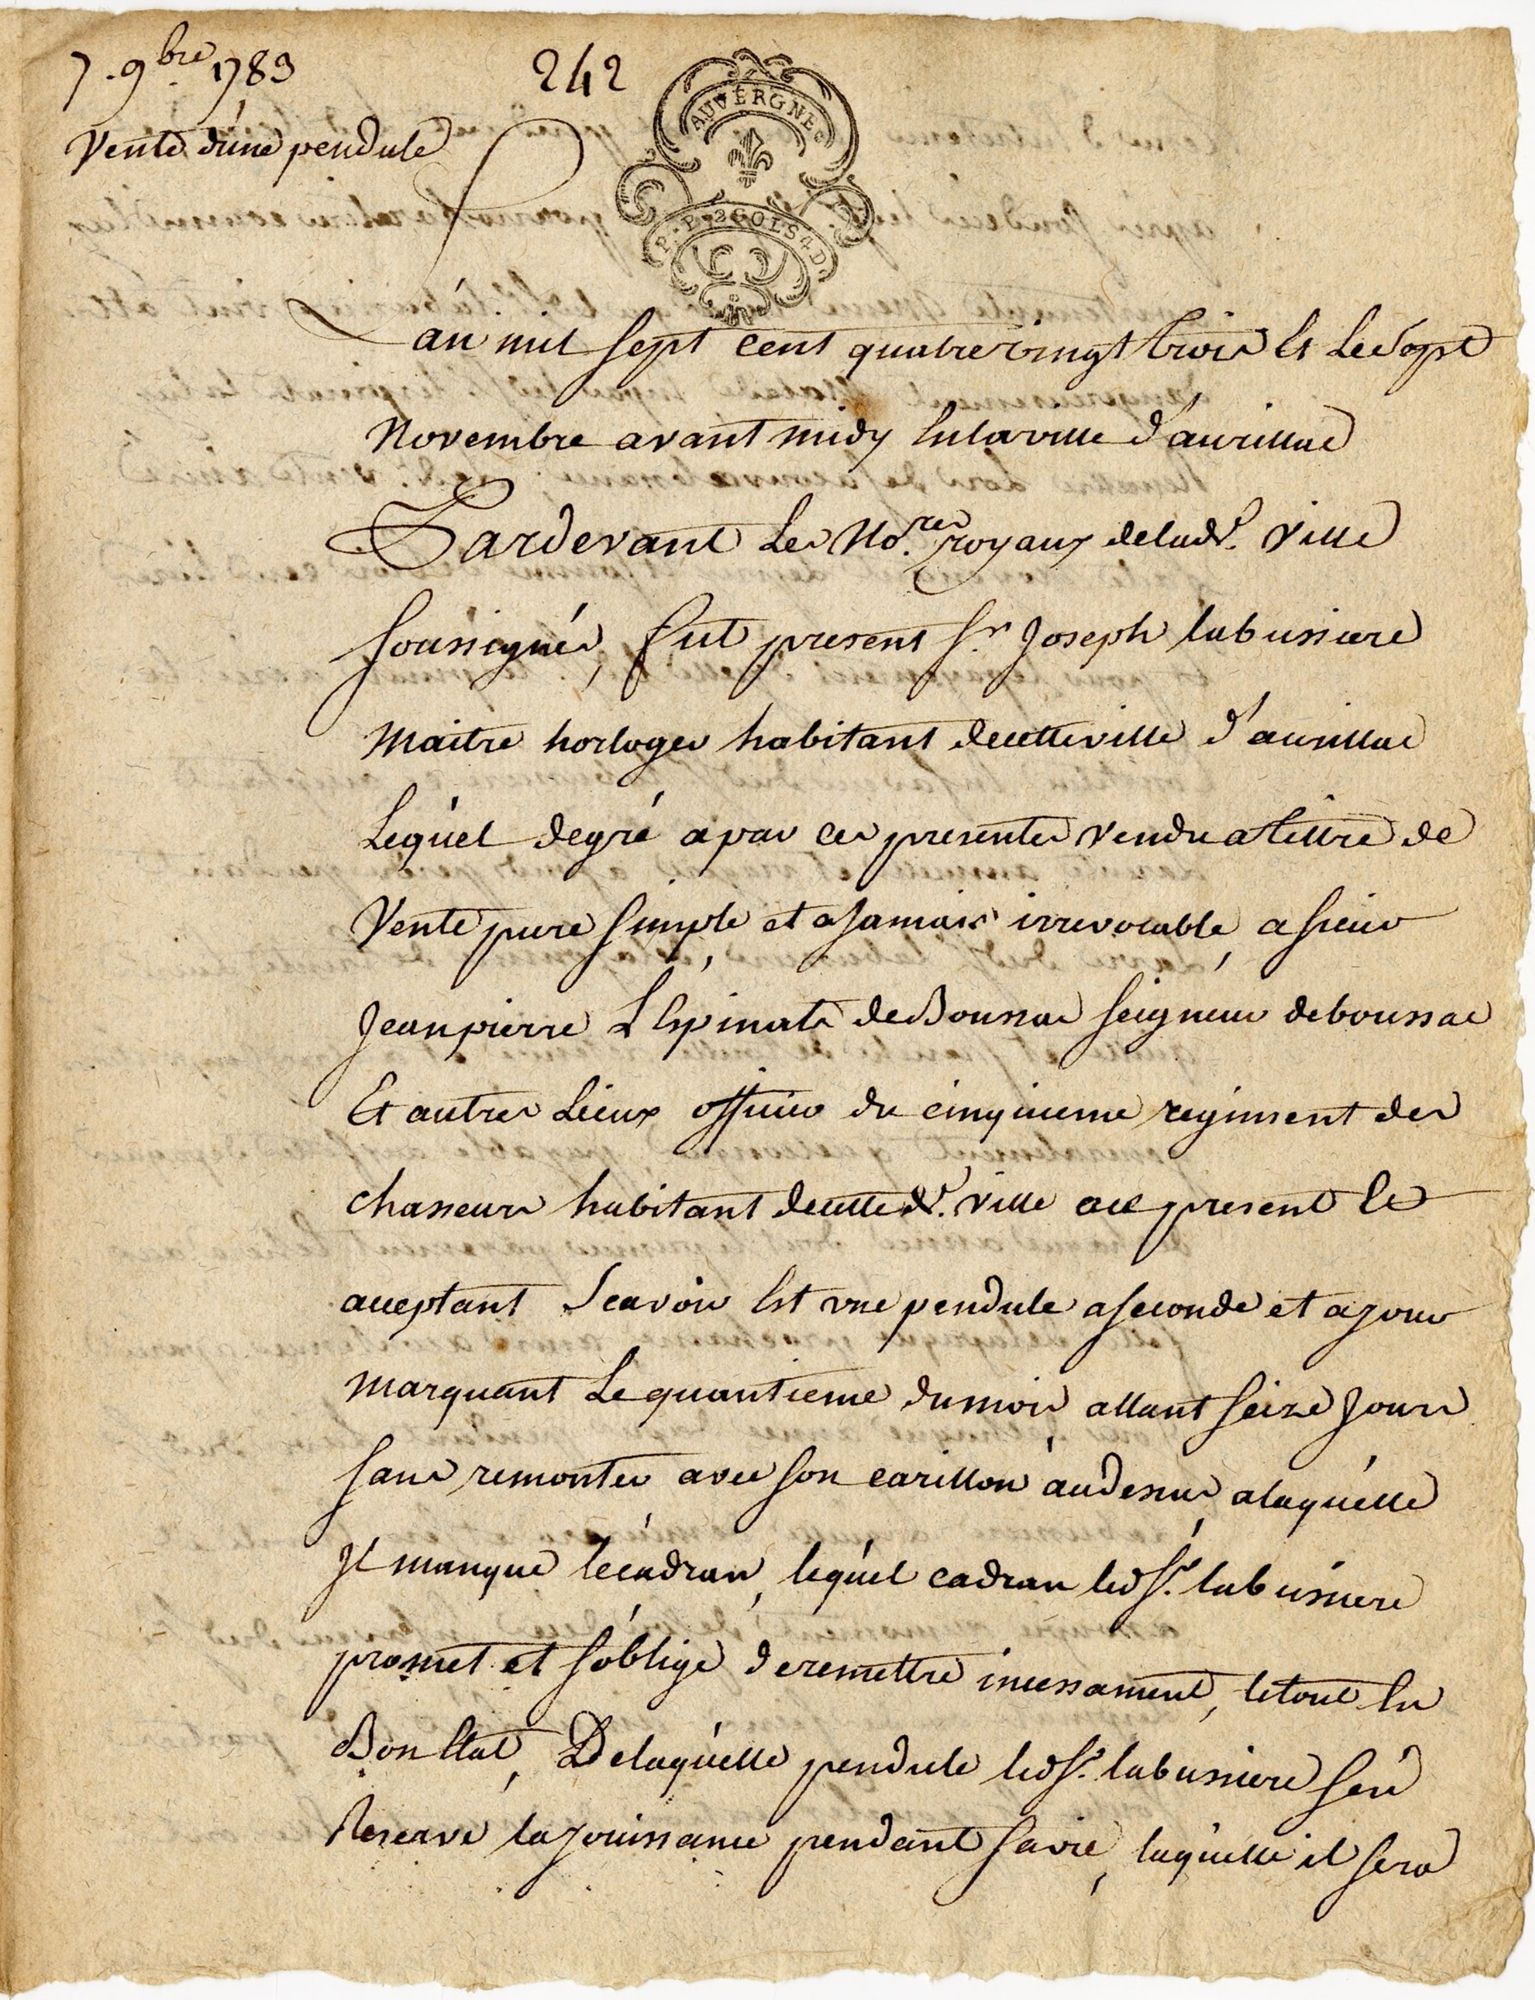 7. 9bre 1783
242
Vente d'une pendule
AUVERGNE
P.P. 2 SOLS 4 D.
L'an mil sept cent quatre vingt trois et le sept
Novembre avant midy en la ville d'aurillac
Pardevant les No.res royaux de lad.e ville
soussignés, fut present s.r Joseph labussiere
maitre horloger habitant de cette ville d'aurillac
Lequel de gré a par ces presentes vendu a tittre de
Vente pure simple, et a jamais irrevocable, a sieur
Jean pierre Lespinats de Boussac seigneur de boussac
Et autres lieux officier du cinquieme regiment des
chasseurs habitant de cette d.e ville ace present et
acceptant scavoir est une pendule a seconde et a jour
marquant le quantieme du mois allant seize jours
sans remonter avec son carillon au dessus, a laquelle
Il manque le cadran, lequel cadran led. s.r labussiere
promet et s'oblige de remettre incessament, le tout en
Bon Etat, De laquelle pendule led. s.r labussiere s'en
Reserve la jouissance pendant sa vie, laquelle il sera